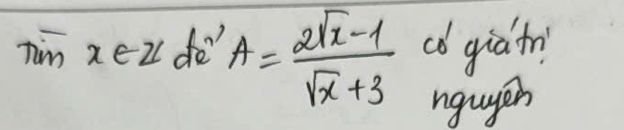 Tìm x ∈ Z để A = (2√x - 1)/(√x + 3) có giá trị
nguyên